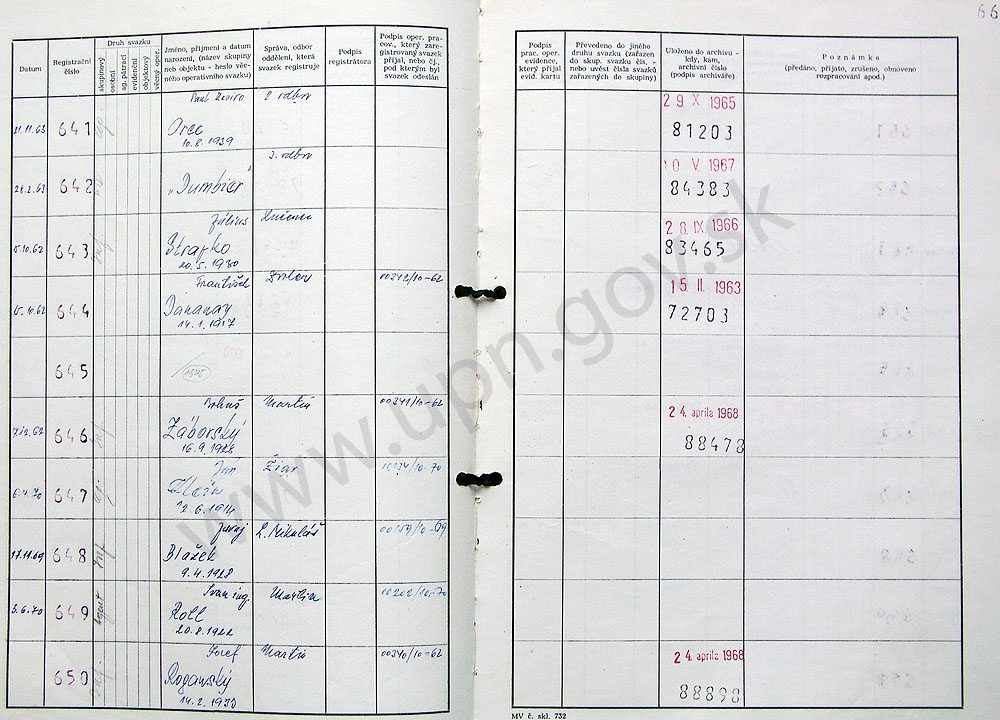 66
Datum
Registrační
číslo
Druh svazku
skupinový
osobní
ag. pátrací
evidenční
objektový
věcný oper.
Jméno, příjmení a datum
narození, (název skupiny
neb objektu - heslo věc-
ného operativního svazku)
Správa, odbor
oddělení, která
svazek registruje
Podpis
registrátora
Podpis oper. pra-
cov., který zare-
gistrovaný svazek
přijal, nebo čj.,
pod kterým byl
svazek odeslán
Podpis
prac. oper.
evidence,
který přijal
evid. kartu
Převedeno do jiného
druhu svazku (zařazen
do skup. svazku čís. -
nebo uvést čísla svazků
zařazených do skupiny)
Uloženo do archivu -
kdy, kam,
archivní číslo
(podpis archiváře)
Poznámka
(předáno, přijato, zrušeno, obnoveno
rozpracování apod.)
2. odbor
641
10.8.1939
29 X 1965
81203
3. odbor
642
"Ďumbier"
10. V. 1967
84383
Július
Lučenec
15.10.62
643
Strapko
20.5.1930
28. IX. 1966
83465
František
Zvolen
00342/10-62
15.10.62
644
14.1.1917
15. II. 1963
72703
645
1645
Martin
00341/10-62
646
Záborský
16.9.1928
24. aprila 1968
88478
Ján
Žiar
6.4.70
647
12.6.1914
Juraj
L. Mikuláš
00159/10-69
17.11.69
648
Blažek
9.4.1928
Ivan ing.
Martin
00202/10-70
3.6.70
649
Roll
20.8.1922
Jozef
Martin
00340/10-62
650
Roganský
14.2.1933
24. aprila 1968
88898
MV č. skl. 732
www.upn.gov.sk